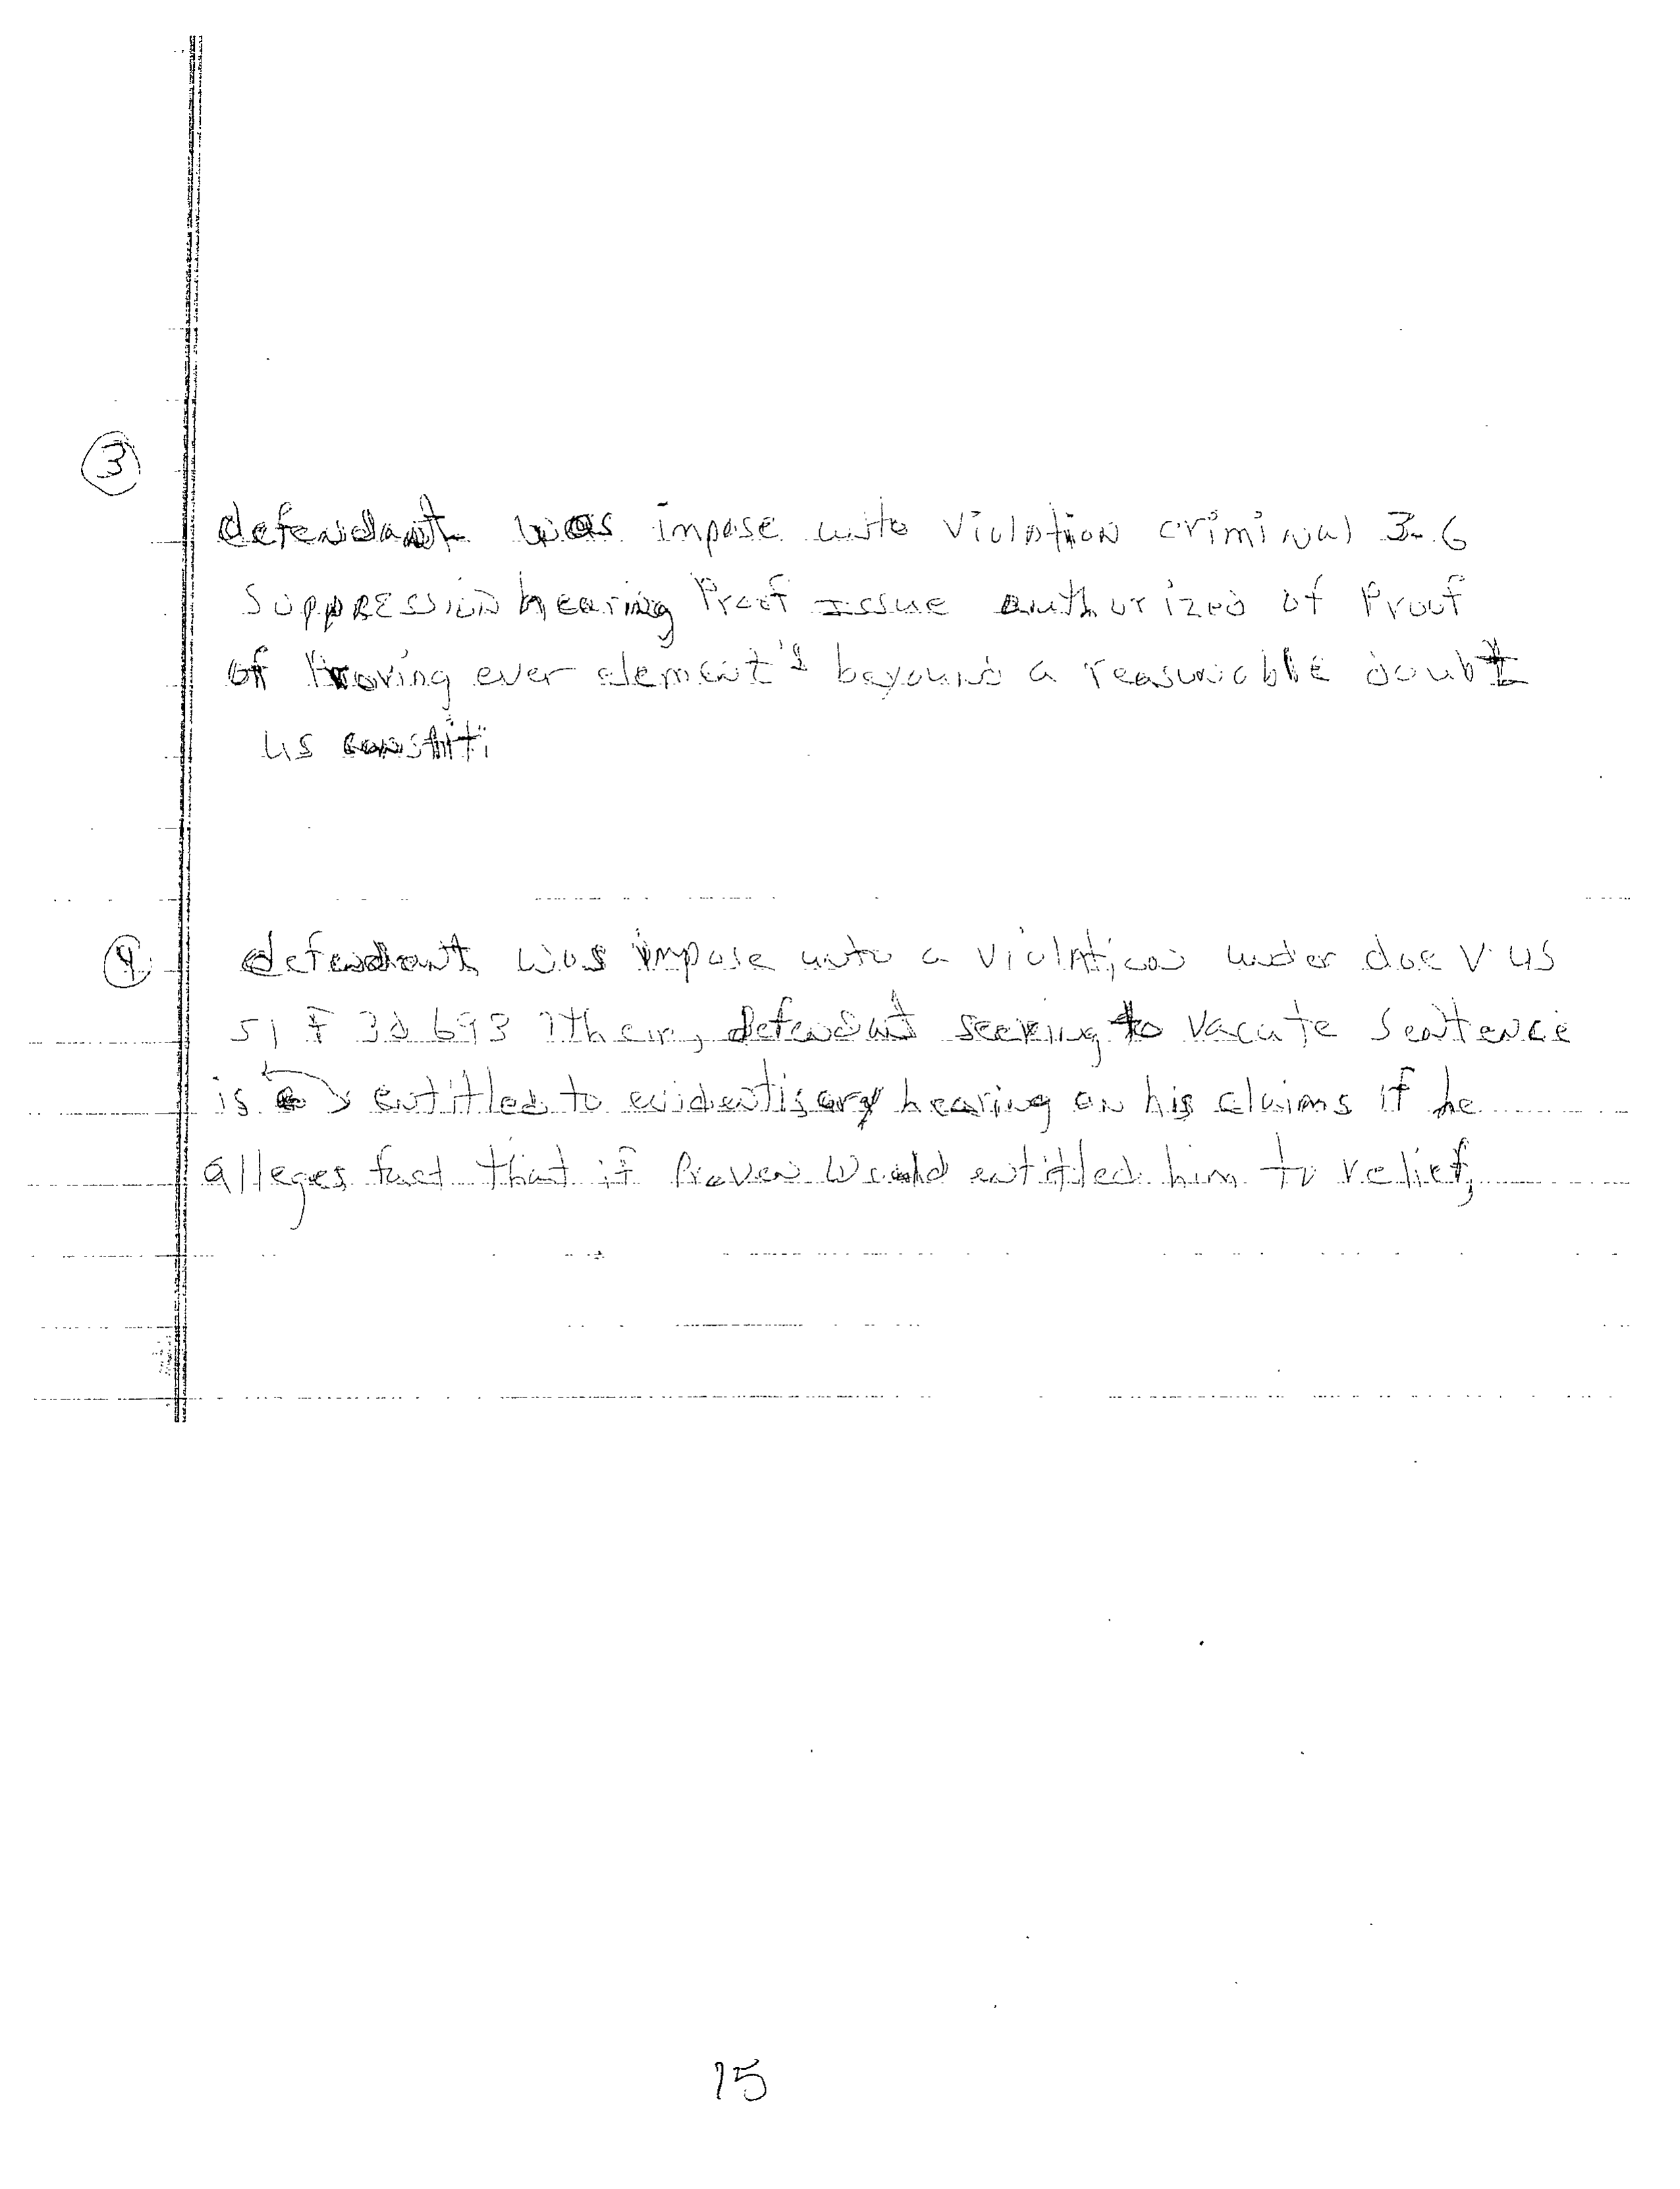 ③
defendant was impose unto violation criminal 3-6
suppression hearing Proof issue authorized of Proof
of Proving ever element's beyound a reasonable doubt
us constit;
④ defendant was impose unto a violation under doe V. US
51 F 3d 693 7ther, defendant seeking to vacate sentence
is entitled to evidentisary hearing on his claims if he
alleges fact that if Proven would entitled him to relief,
15